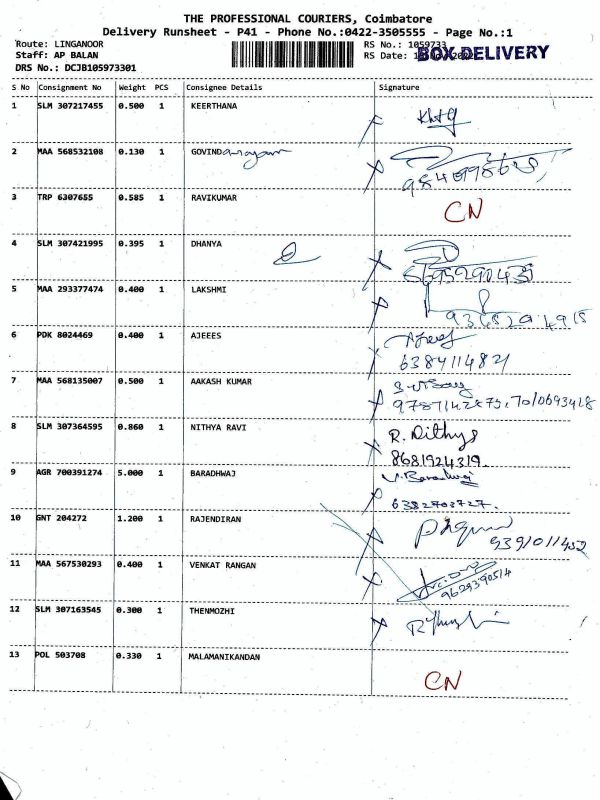 THE PROFESSIONAL COURIERS, Coimbatore
Delivery Runsheet - P41 - Phone No.:0422-3505555 - Page No.:1
Route: LINGANOOR
RS No.: 1059733
Staff: AP BALAN
RS Date:
BOX DELIVERY
DRS No.: DCJB105973301
S No Consignment No Weight PCS Consignee Details Signature
1 SLM 307217455 0.500 1 KEERTHANA
2 MAA 568532108 0.130 1 GOVINDarajan
3 TRP 6307655 0.585 1 RAVIKUMAR CN
4 SLM 307421995 0.395 1 DHANYA
5 MAA 293377474 0.400 1 LAKSHMI
6 PDK 8024469 0.400 1 AJEEES
7 MAA 568135007 0.500 1 AAKASH KUMAR
8 SLM 307364595 0.860 1 NITHYA RAVI R. Nithya
8681924319.
9 AGR 700391274 5.000 1 BARADHWAJ
6382703727.
10 GNT 204272 1.200 1 RAJENDIRAN
9391011452
11 MAA 567530293 0.400 1 VENKAT RANGAN
9629390514
12 SLM 307163545 0.300 1 THENMOZHI
13 POL 503708 0.330 1 MALAMANIKANDAN CN